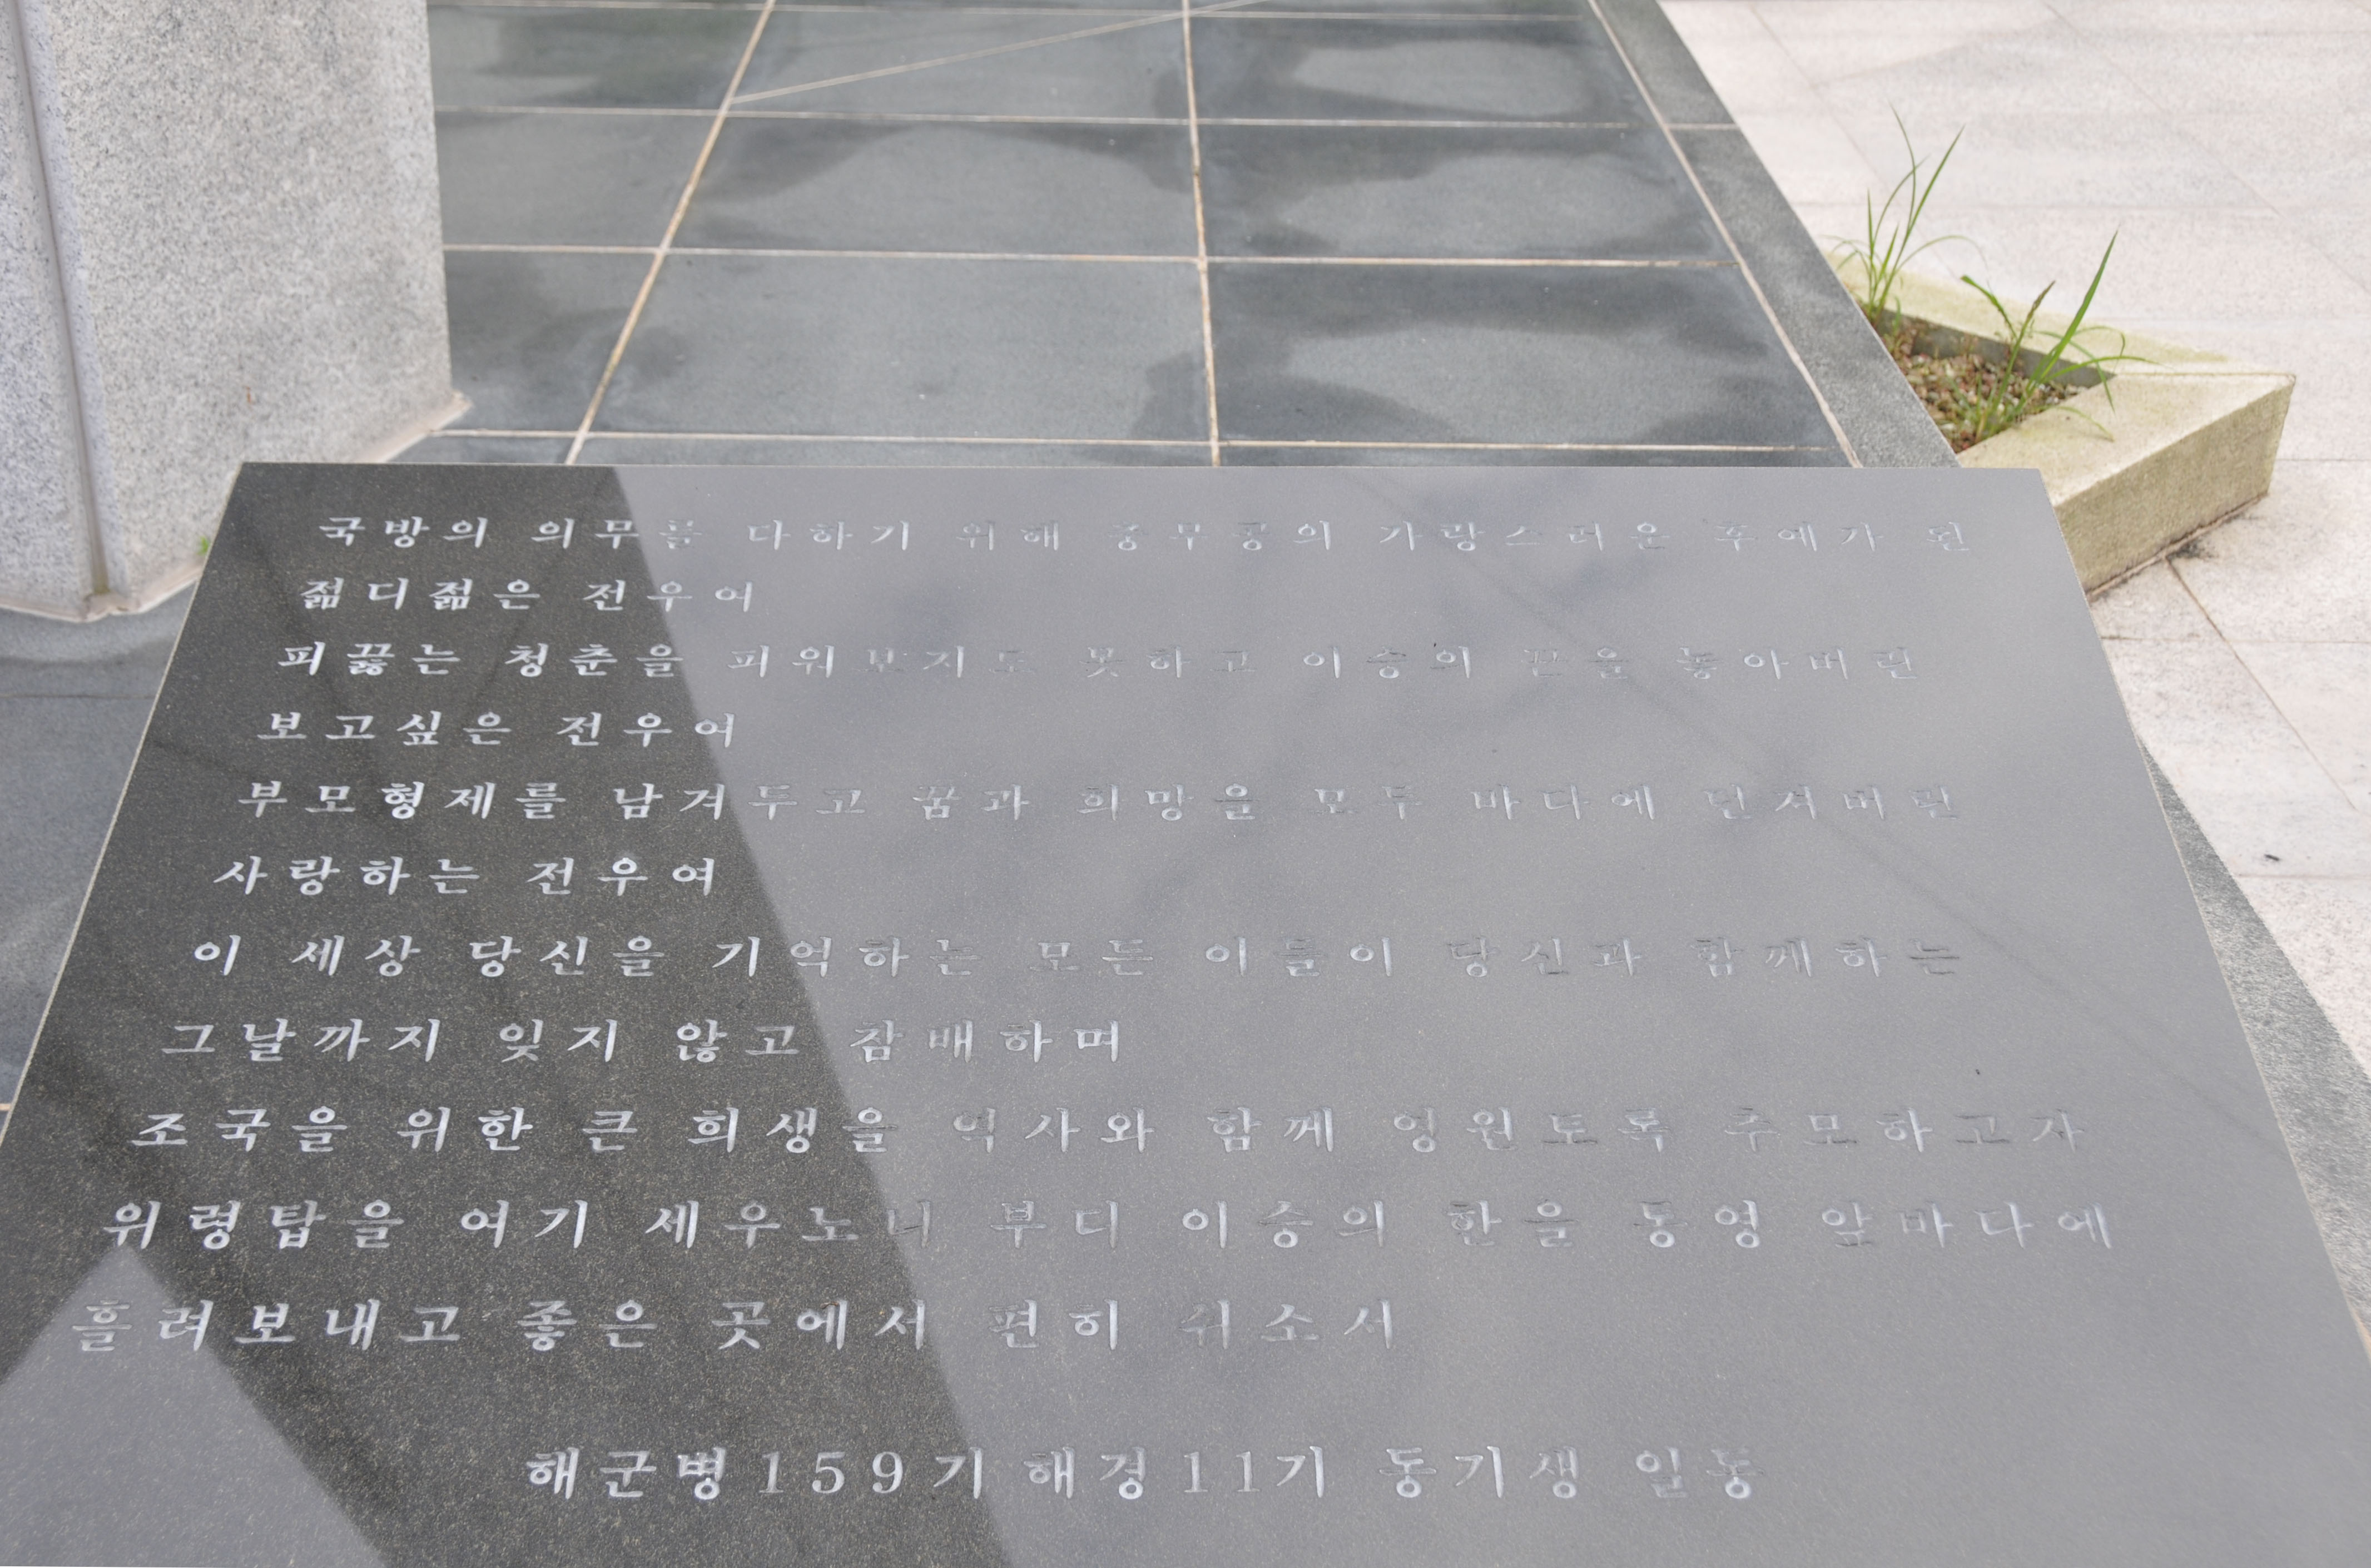 국방의 의무를 다하기 위해 충무공의 자랑스러운 후예가 된
젊디젊은 전우여
피끓는 청춘을 피워보지도 못하고 이승의 끈을 놓아버린
보고싶은 전우여
부모형제를 남겨두고 꿈과 희망을 모두 바다에 던져버린
사랑하는 전우여
이 세상 당신을 기억하는 모든 이들이 당신과 함께하는
그날까지 잊지 않고 참배하며
조국을 위한 큰 희생을 역사와 함께 영원도록 추모하고자
위령탑을 여기 세우노니 부디 이승의 한을 통영 앞바다에
흘려보내고 좋은 곳에서 편히 쉬소서
해군병159기 해경11기 동기생 일동